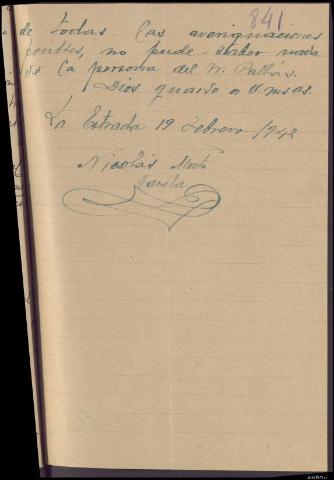 841
de todas las averiguaciones
posibles, no pude saber nada
de la persona del Sr. Pallás.
Dios guarde a Usías.
La Estrada 19 febrero 1942
Nicolás Mato
Varela